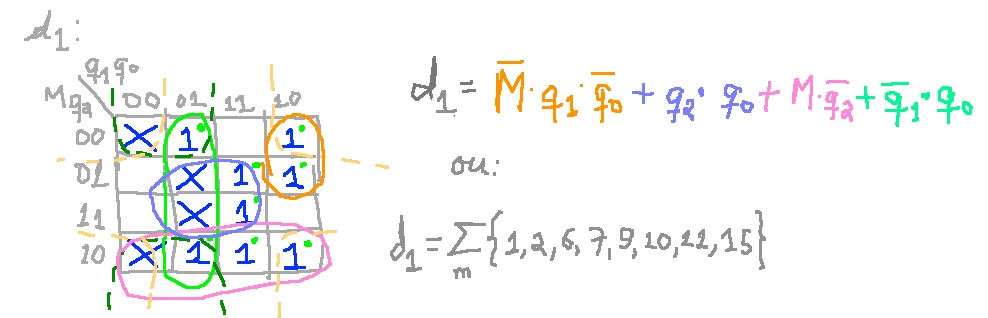 d₁:
q₁q₀
Mq₂ 00 01 11 10
00 X 1 1
01 X 1 1
11 X 1
10 X 1 1 1
d₁ = M̅·q₁·q̅₀ + q₂·q₀ + M·q̅₂ + q̅₁·q₀
ou:
d₁ = Σm{1,2,6,7,9,10,11,15}